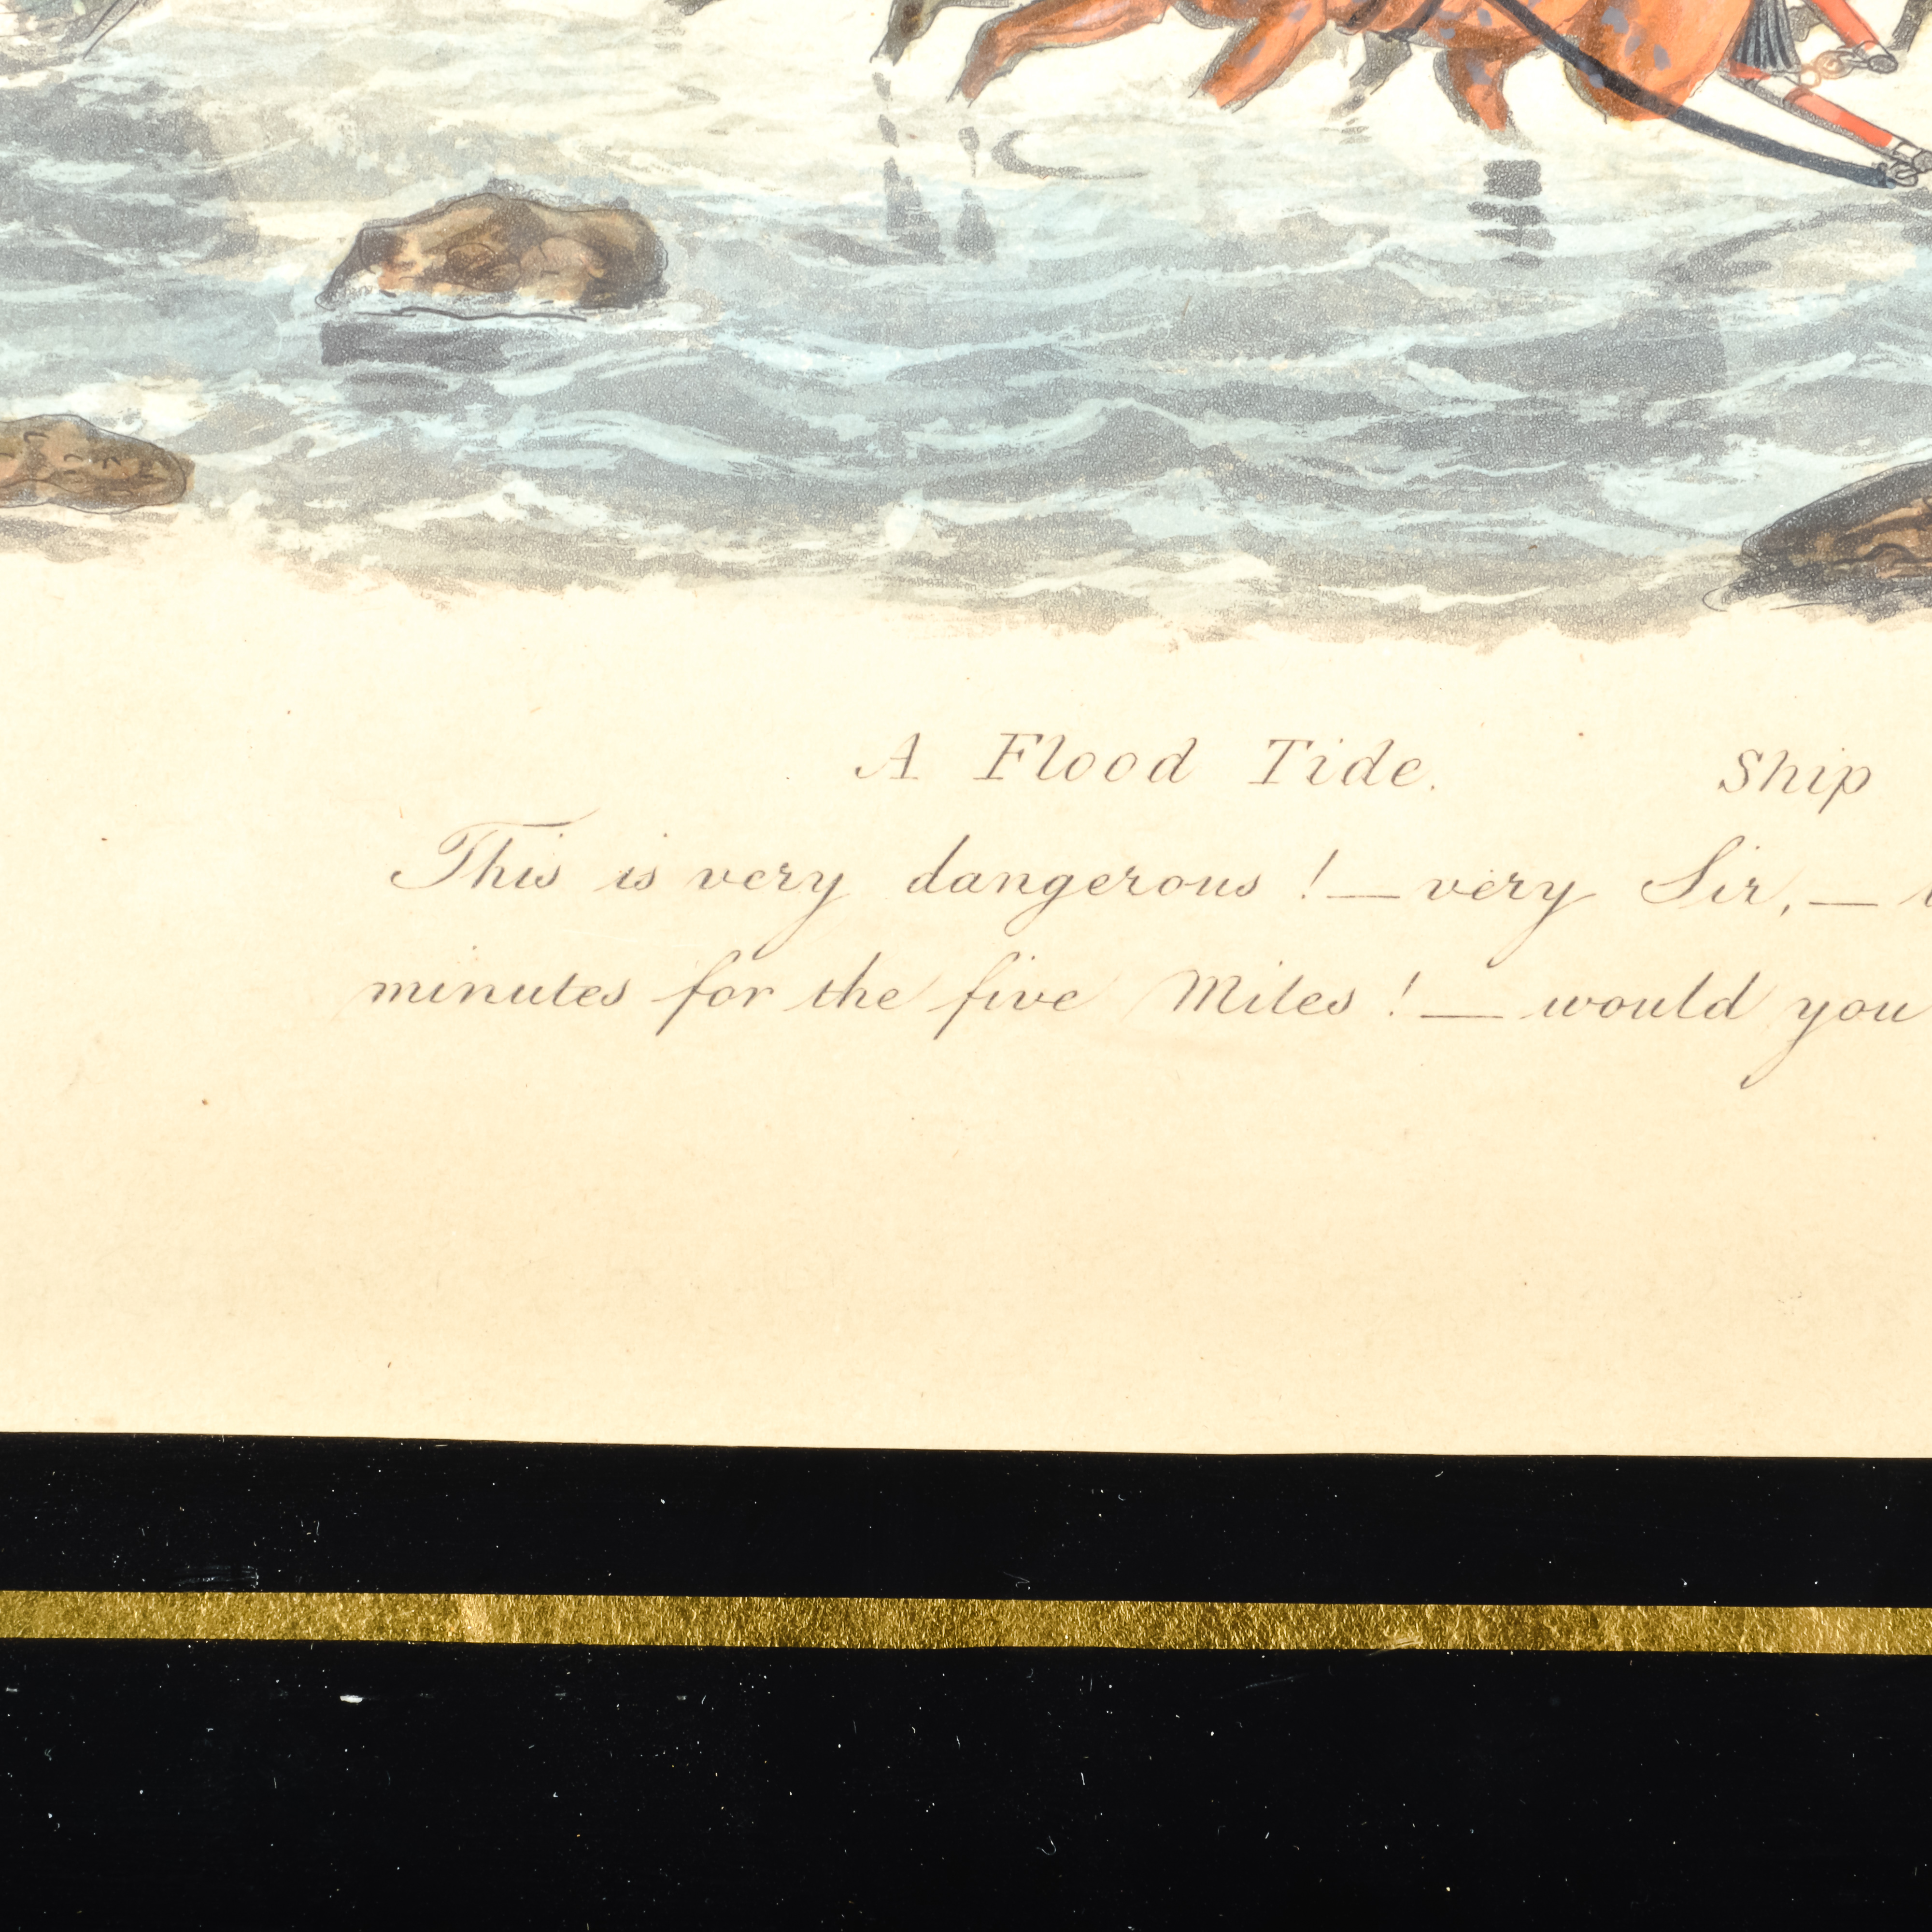 A Flood Tide. Ship
This is very dangerous ! — very Sir, —
minutes for the five Miles ! — would you